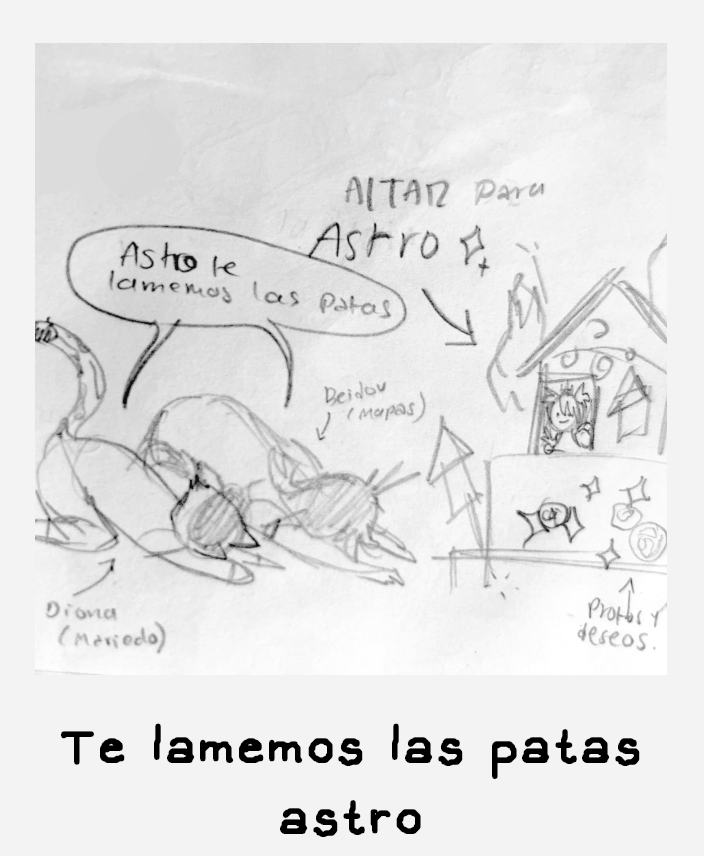 AlTAR para
Astro
Astro te
lamemos las patas
Deidou
(Mapas)
Diana
(Mariedo)
Protos y
deseos.
Te lamemos las patas
astro